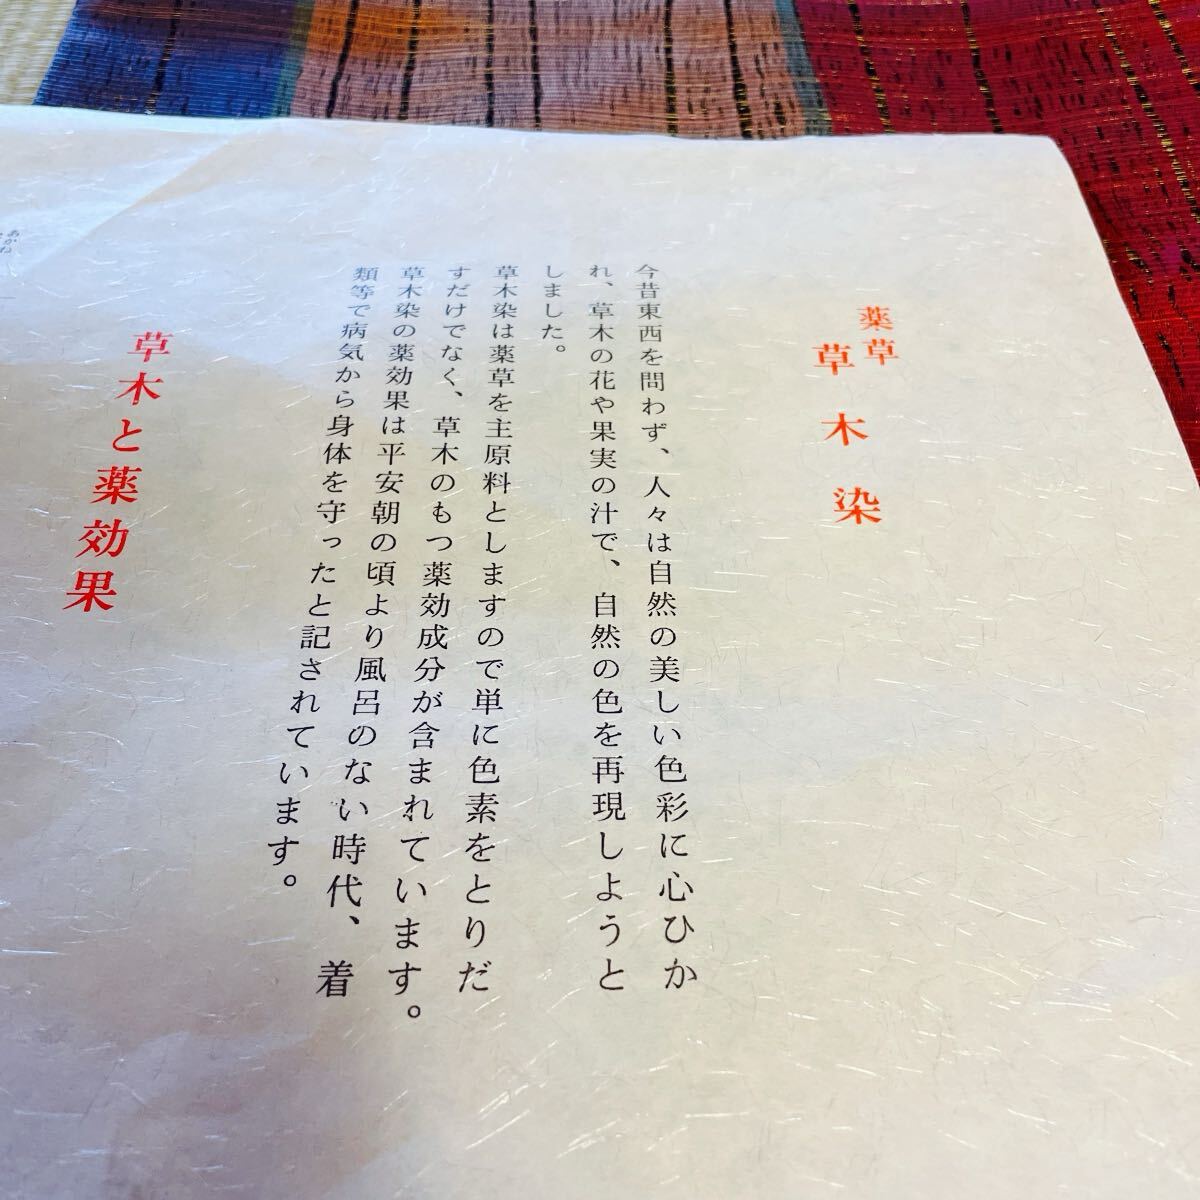 薬草
草木染
今昔東西を問わず、人々は自然の美しい色彩に心ひか
れ、草木の花や果実の汁で、自然の色を再現しようと
しました。
草木染は薬草を主原料としますので単に色素をとりだ
すだけでなく、草木のもつ薬効成分が含まれています。
草木染の薬効果は平安朝の頃より風呂のない時代、着
類等で病気から身体を守ったと記されています。
草木と薬効果
あかね